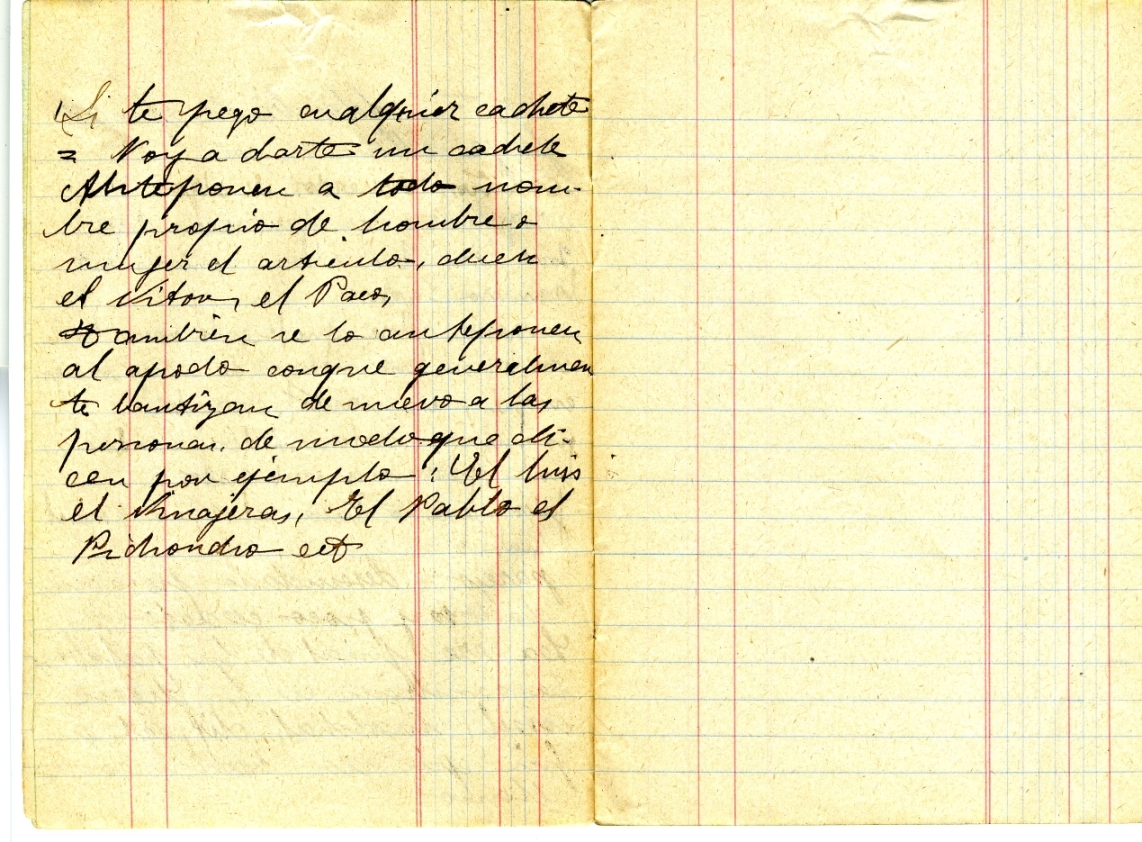 Si te pego cualquier cachete
= Voy a darte un cachete
Anteponen a todo nom-
bre propio de hombre o
mujer el artículo, dicen
el Vitor, el Paco,
Tambien se lo anteponen
al apodo conque generalmen
te bautizan de nuevo a las
personas, de modo que di-
cen por ejemplo: El Luis
el Vinajeras, El Pablo el
Pichondro ect